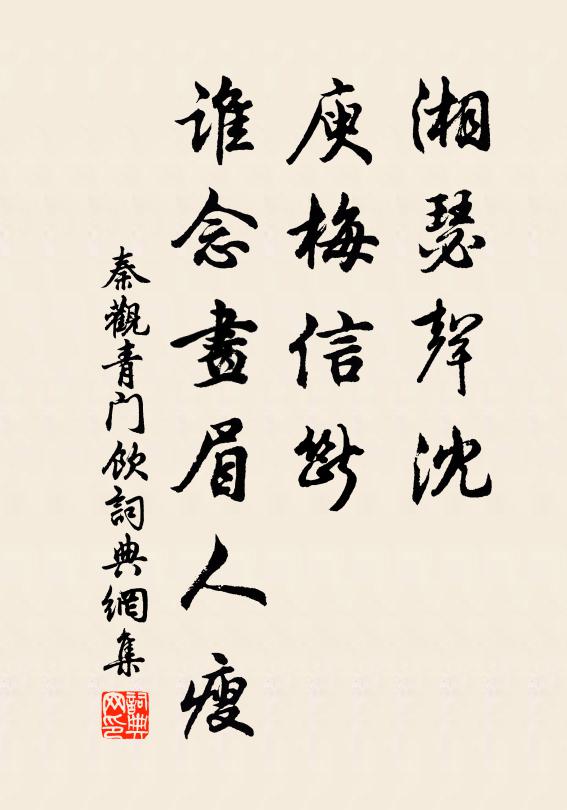 湘瑟聲沈
庾梅信斷
誰念畫眉人瘦
秦觀青门飲詞典網集
詞典网印